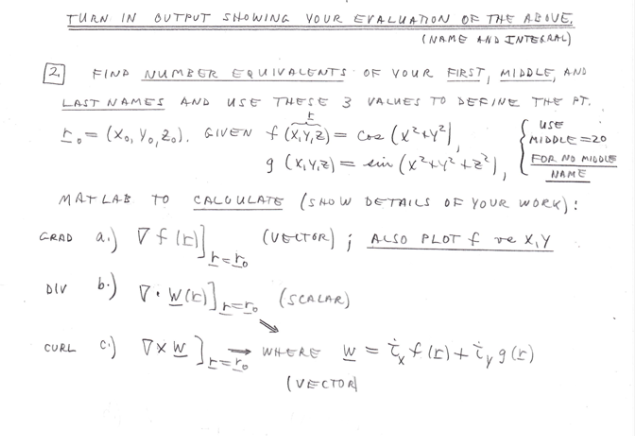 TURN IN OUTPUT SHOWING YOUR EVALUATION OF THE ABOVE,
(NAME AND INTEGRAL)
2. FIND NUMBER EQUIVALENTS OF YOUR FIRST, MIDDLE, AND
LAST NAMES AND USE THESE 3 VALUES TO DEFINE THE PT.
r₀ = (X₀, Y₀, Z₀). GIVEN f(X,Y,Z) = cos(X²+Y²),
r
g(X,Y,Z) = sin(X²+Y²+Z²),
{ USE
MIDDLE = 20
FOR NO MIDDLE
NAME
MATLAB TO CALCULATE (SHOW DETAILS OF YOUR WORK):
GRAD a.) ∇f(r)]r=r₀ (VECTOR); ALSO PLOT f vs X,Y
DIV b.) ∇·W(r)]r=r₀ (SCALAR)
CURL c.) ∇×W]r=r₀ → WHERE W = iₓf(r) + iᵧg(r)
(VECTOR)